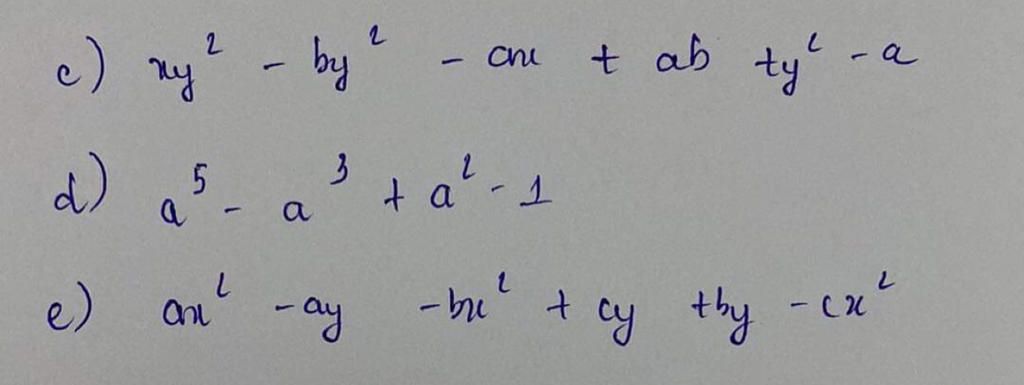 c) xy² - by² - ax + ab + y² - a
d) a⁵ - a³ + a² - 1
e) ax² - ay - bx² + cy + by - cx²